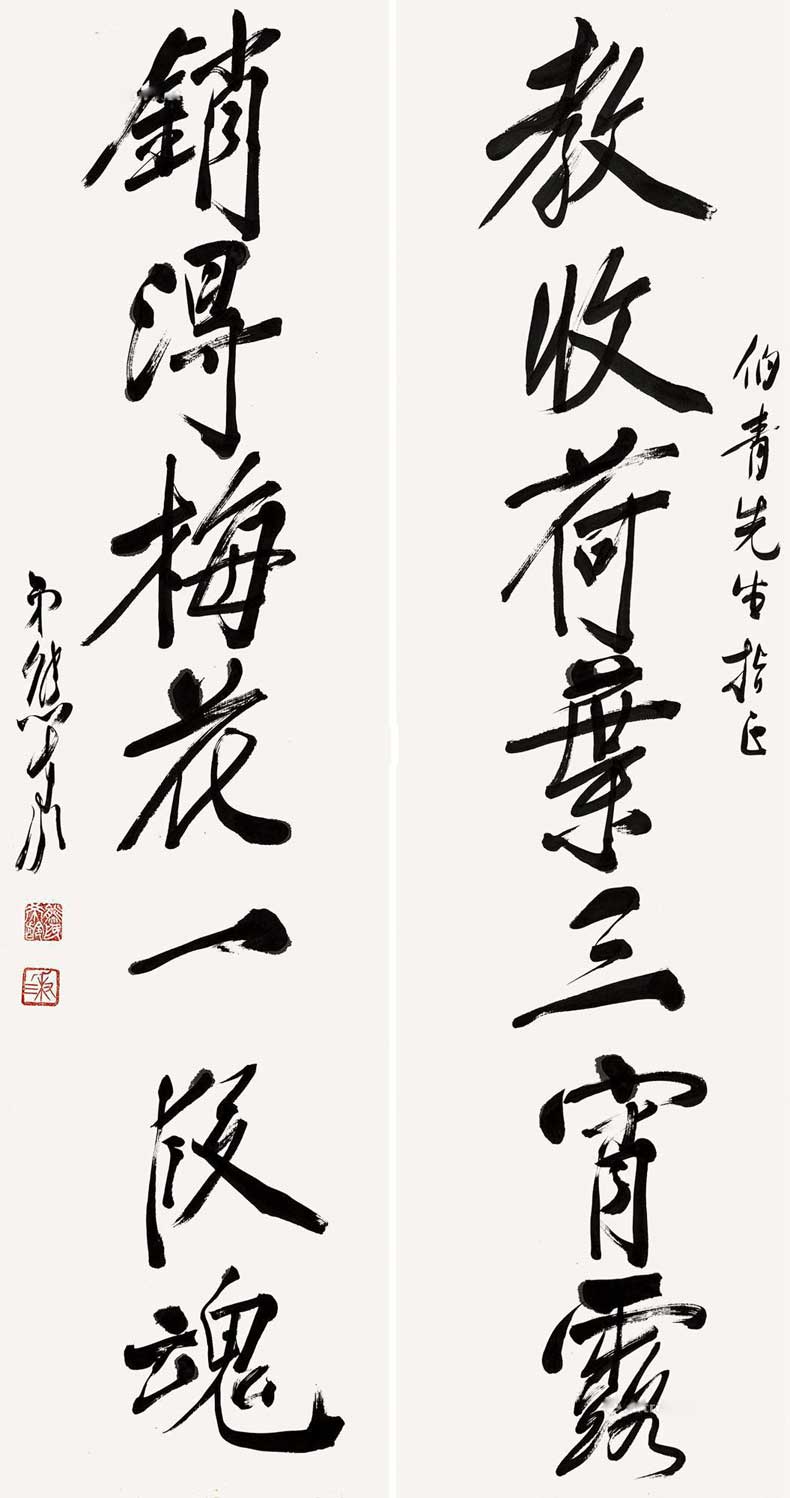 伯青先生指正
教收荷葉三宵露
銷得梅花一段魂
弟熊